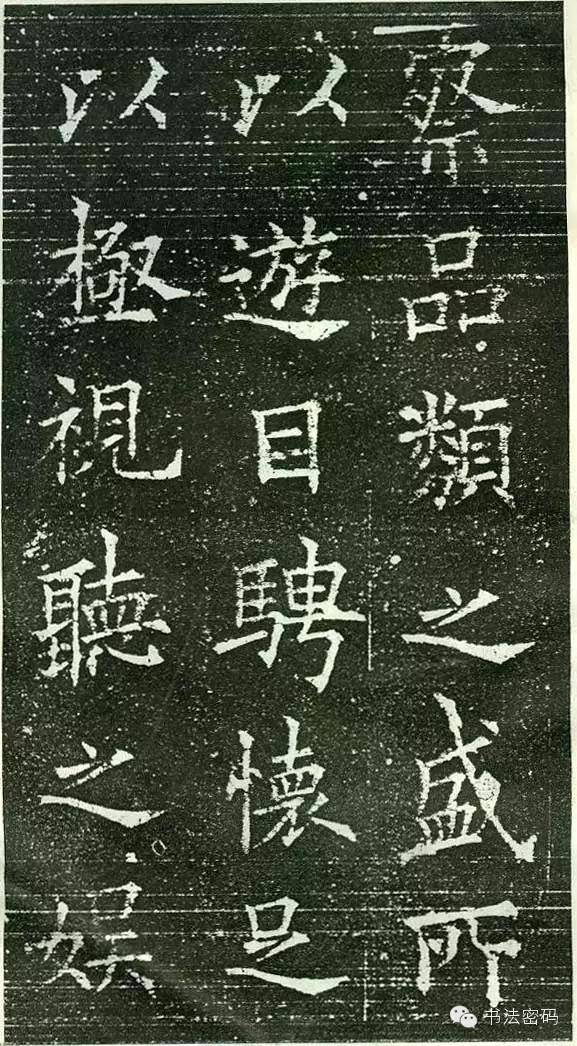 察品類之盛所
以遊目騁懷足
以極視聽之娱
书法密码